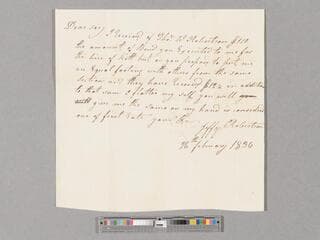 Dear sir,
I received of Thos W Robertson $110
the amount of Bond you Executed to me for
the hire of but as you propose to put me
an Equal footing with others from the same
section and they have received $124 in addition
to that sum I flatter my self you will
give me the same on my hand in consideration
one of first rate yours &c
Jeffy Robertson
26th February 1836